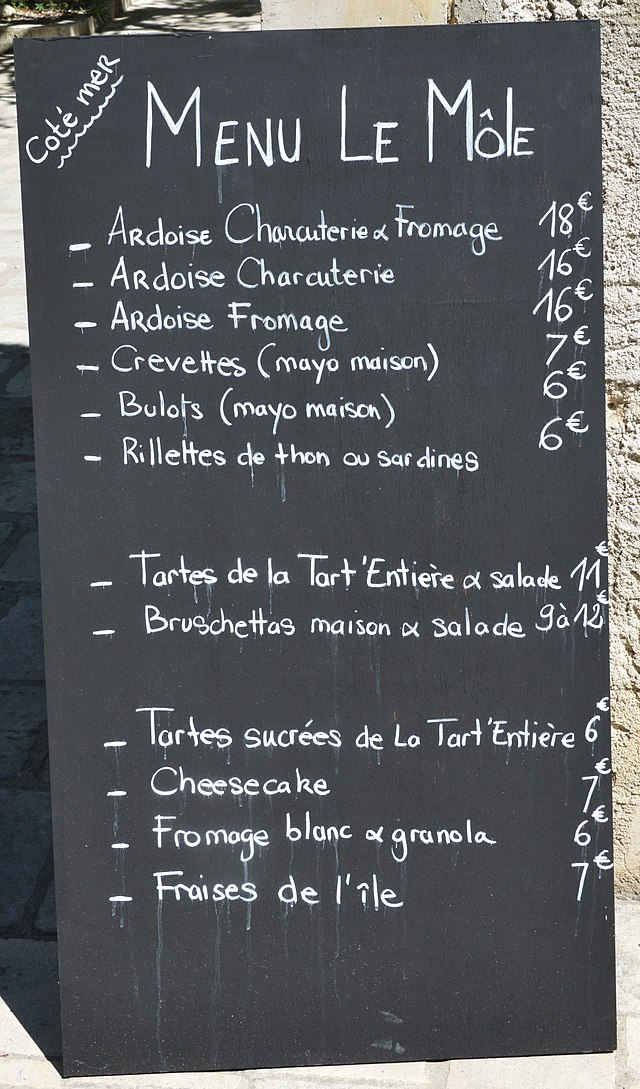 Coté mer
MENU LE MÔLE
- Ardoise Charcuterie & Fromage 18€
- Ardoise Charcuterie 16€
- Ardoise Fromage 16€
- Crevettes (mayo maison) 7€
- Bulots (mayo maison) 6€
- Rillettes de thon ou sardines 6€
- Tartes de la Tart'Entière & salade 11€
- Bruschettas maison & salade 9 à 12€
- Tartes sucrées de La Tart'Entière 6€
- Cheesecake 7€
- Fromage blanc & granola 6€
- Fraises de l'île 7€